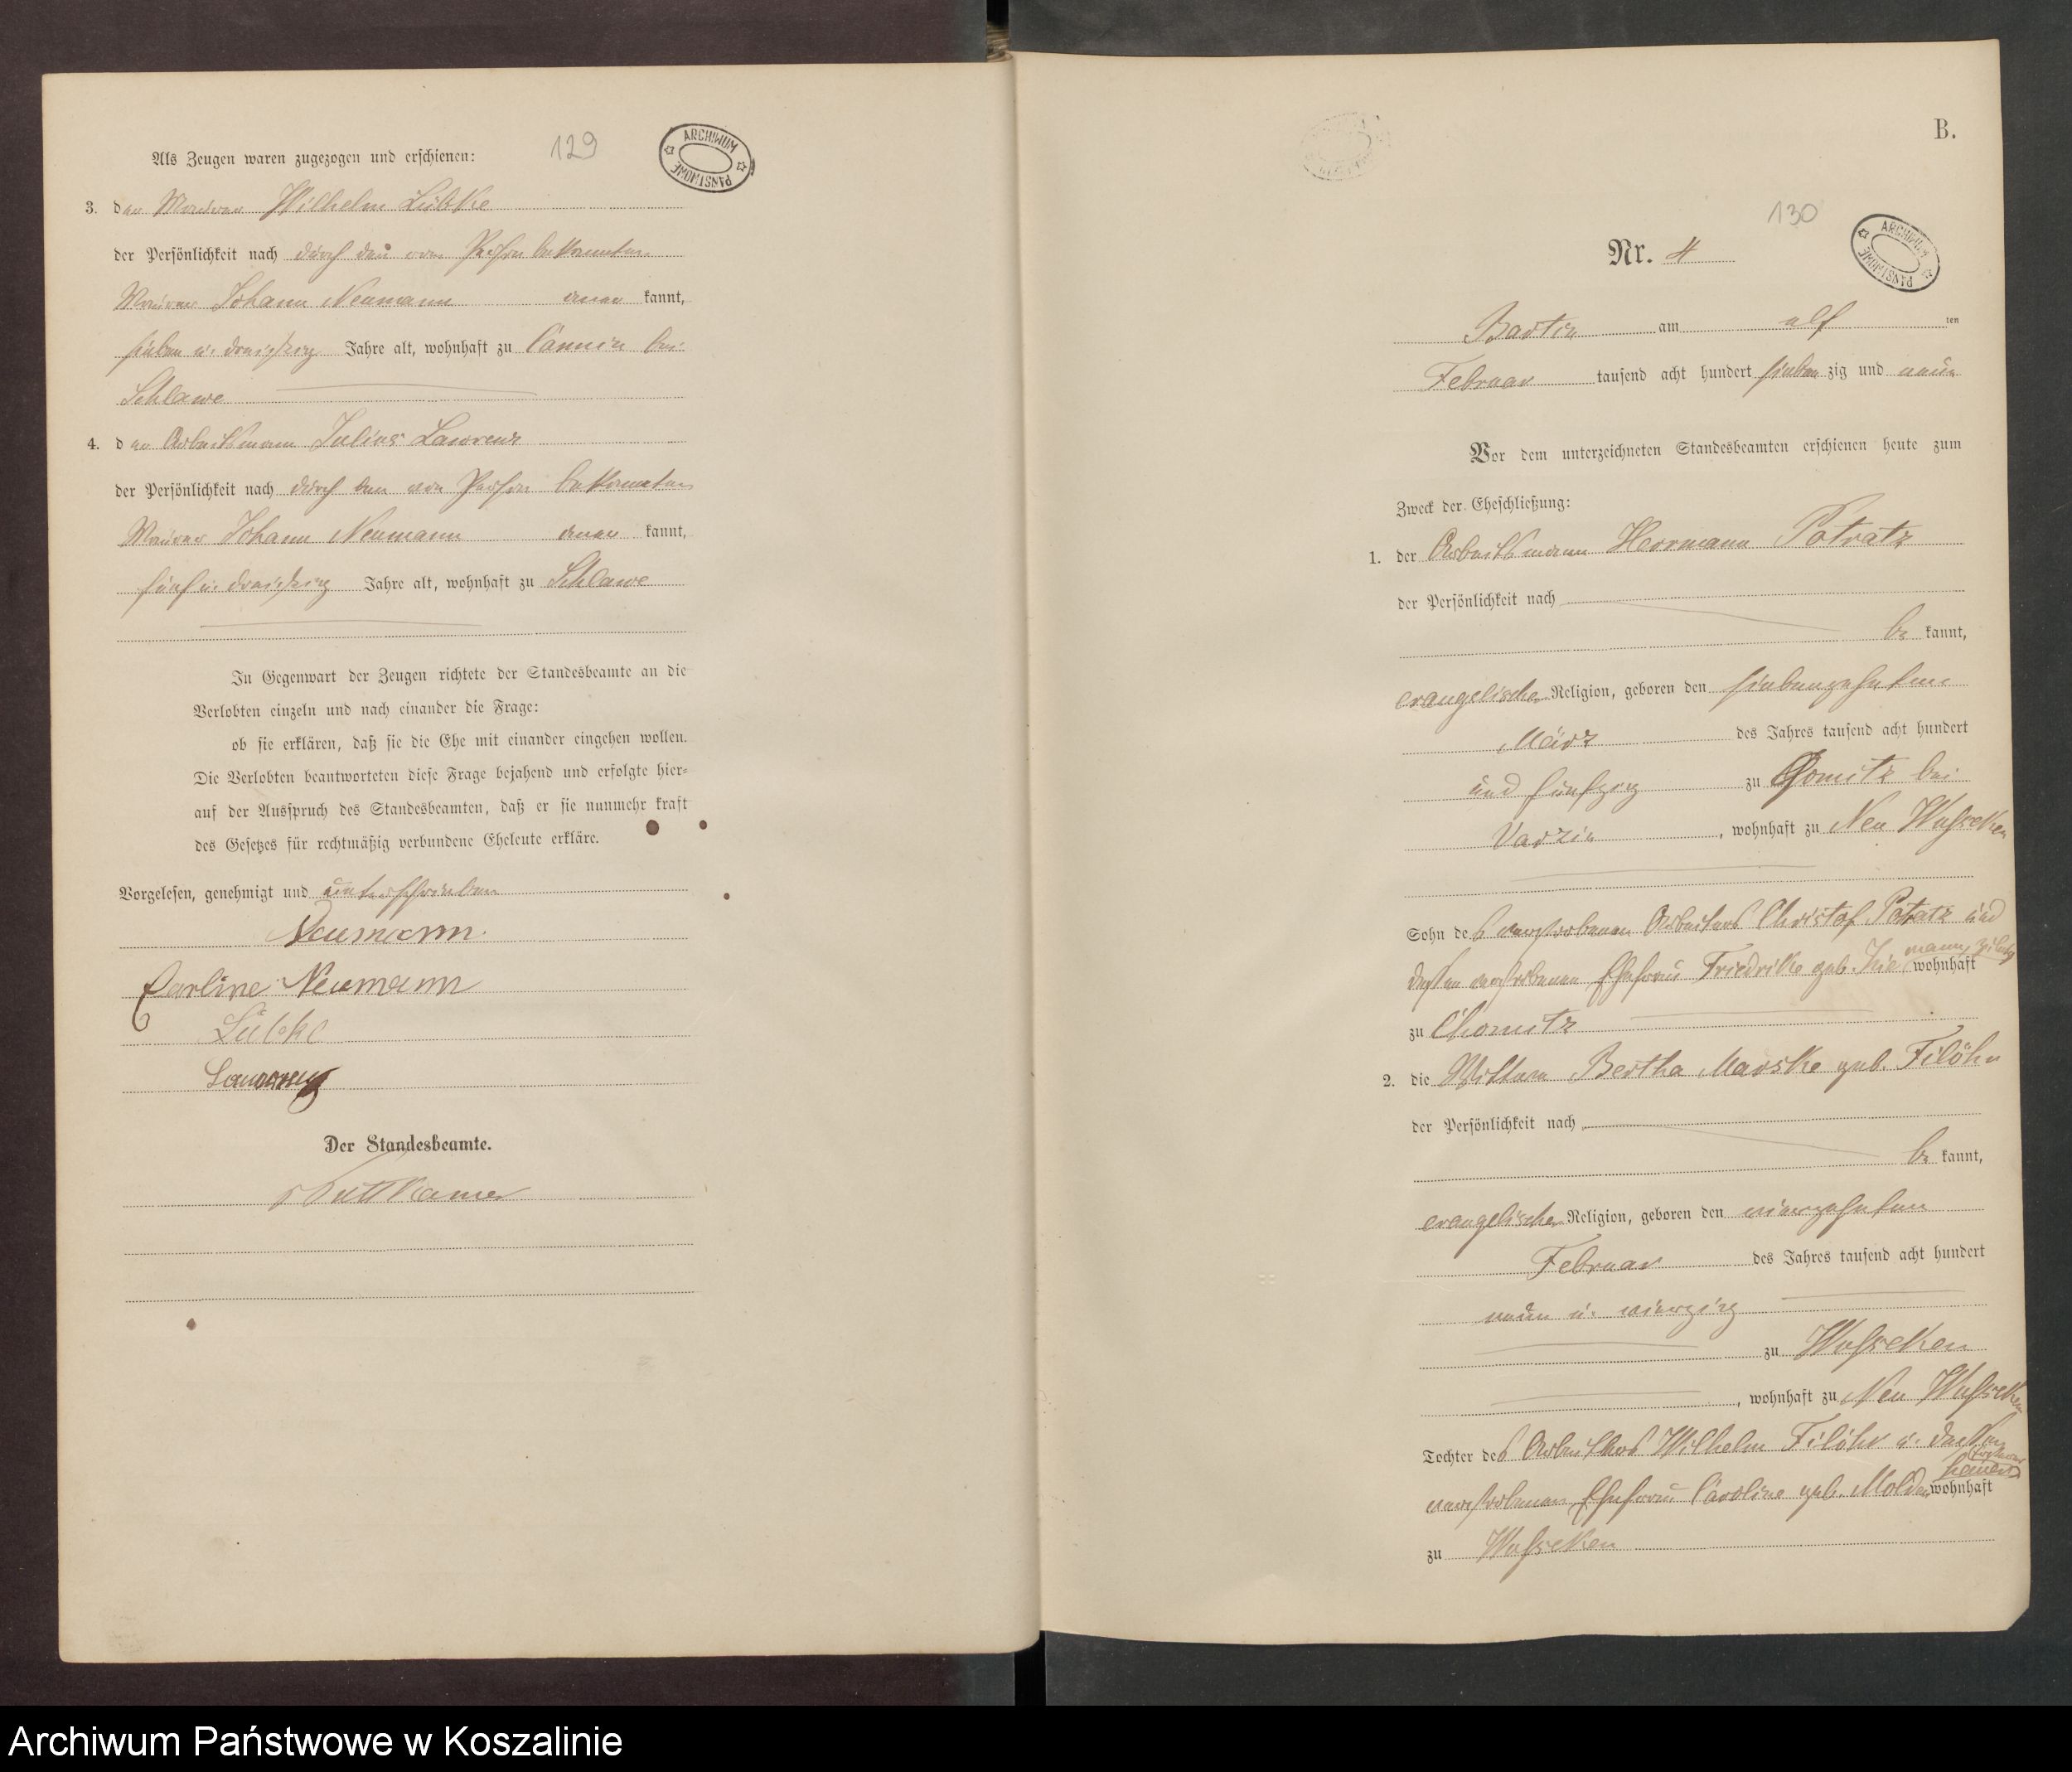 129
ARCHIWUM PAŃSTWOWE
Als Zeugen waren zugezogen und erschienen:
3. der Maurer Wilhelm Lübke
der Persönlichkeit nach durch den von Person bekannten
Maurer Johann Neumann aner kannt,
sieben u. dreißig Jahre alt, wohnhaft zu Cannin bei
Schlawe
4. der Arbeitsmann Julius Lawrenz
der Persönlichkeit nach durch den von Person bekannten
Maurer Johann Neumann aner kannt,
fünf u. dreißig Jahre alt, wohnhaft zu Schlawe
In Gegenwart der Zeugen richtete der Standesbeamte an die
Verlobten einzeln und nach einander die Frage:
ob sie erklären, daß sie die Ehe mit einander eingehen wollen.
Die Verlobten beantworteten diese Frage bejahend und erfolgte hier-
auf der Ausspruch des Standesbeamten, daß er sie nunmehr kraft
des Gesetzes für rechtmäßig verbundene Eheleute erkläre.
Vorgelesen, genehmigt und unterschrieben
Neumann
Carline Neumann
Lübke
Lawrenz
Der Standesbeamte.
v Puttkamer
B.
130
ARCHIWUM PAŃSTWOWE
Nr. 4
Bartin am elf ten
Februar tausend acht hundert sieben zig und neun
Vor dem unterzeichneten Standesbeamten erschienen heute zum
Zweck der Eheschließung:
1. der Arbeitsmann Herrmann Potratz
der Persönlichkeit nach
be kannt,
evangelischer Religion, geboren den siebenzehnten
März des Jahres tausend acht hundert
und fünfzig zu Chomitz bei
Varzin, wohnhaft zu Neu Wussecken
Sohn des verstorbenen Arbeiters Christof Potratz und
dessen verstorbenen Ehefrau Friedrike geb. mann, wohnhaft
zu Chomitz
2. die Wittwe Bertha Marske geb. Filöhr
der Persönlichkeit nach
be kannt,
evangelischer Religion, geboren den vierzehnten
Februar des Jahres tausend acht hundert
neun u. vierzig
zu Wussecken
, wohnhaft zu Neu Wussecken
Tochter des Arbeiters Wilhelm Filöhr u. dessen
verstorbenen Ehefrau Caroline geb. Molden hauer wohnhaft
zu Wussecken
Archiwum Państwowe w Koszalinie